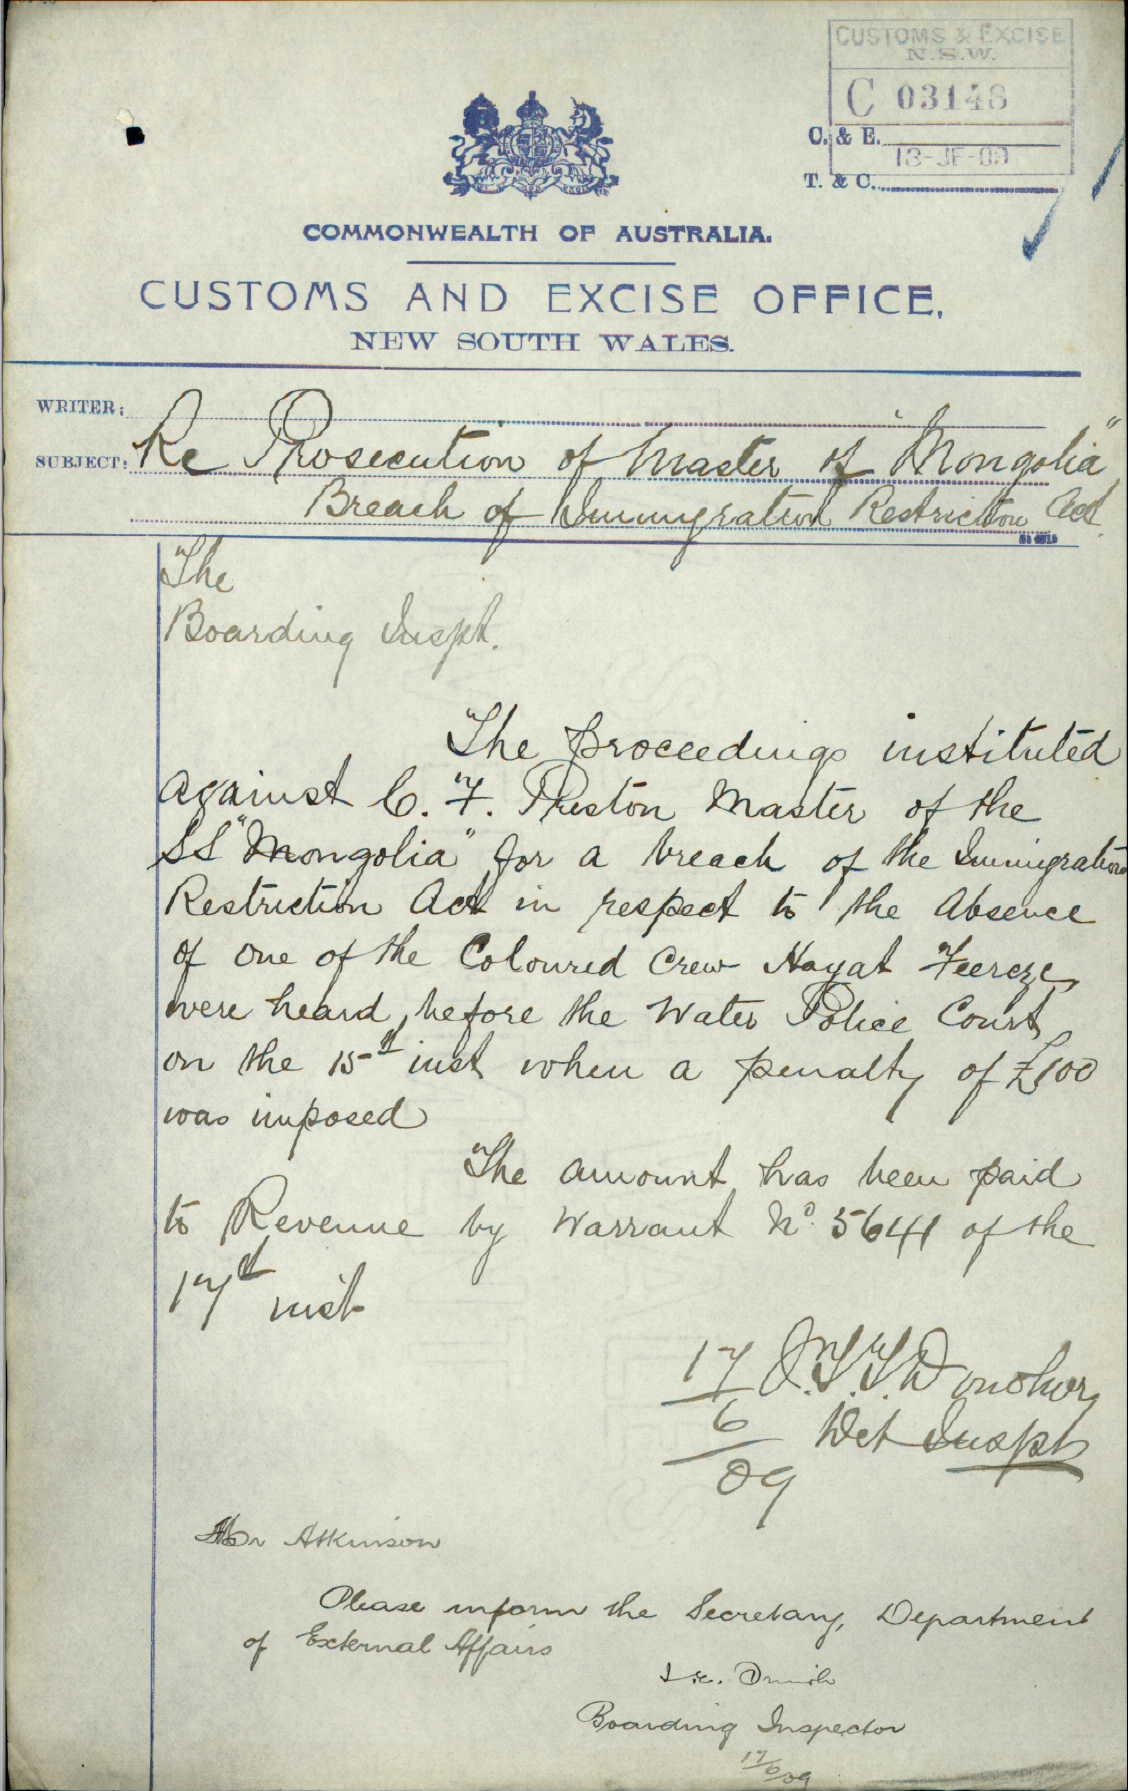 CUSTOMS & EXCISE
N.S.W.
C 03148
C. & E.
T. & C.
COMMONWEALTH OF AUSTRALIA.
CUSTOMS AND EXCISE OFFICE,
NEW SOUTH WALES.
WRITER:
SUBJECT: Re Prosecution of Master of "Mongolia"
Breach of Immigration Restriction Act.
The
Boarding Inspt.
The proceedings instituted
against C. F. Preston Master of the
SS "Mongolia" for a breach of the Immigration
Restriction Act in respect to the Absence
of one of the Coloured Crew Hayat Feereze
were heard before the Water Police Court
on the 15th inst when a penalty of £100
was imposed
The amount has been paid
to Revenue by Warrant No. 5641 of the
17th inst
17/6/09 Donohoe
Det Inspt
Mr Atkinson
Please inform the Secretary, Department
of External Affairs
Boarding Inspector
17/6/09